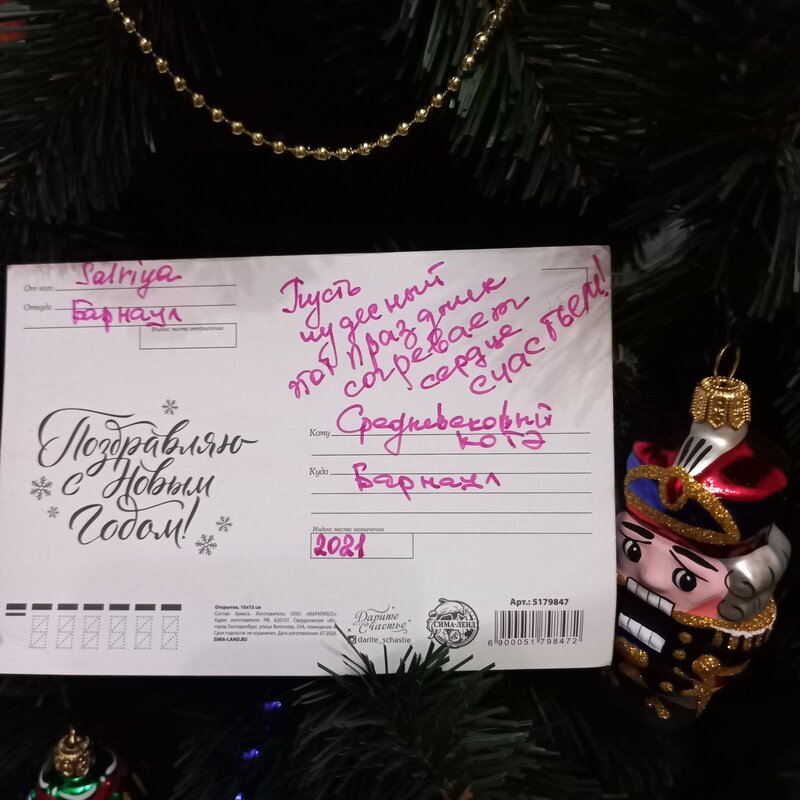 От кого Salviya
Откуда Барнаул
Индекс места отправления
Пусть
чудесный
этот праздник
согревает
сердце
счастьем!
Поздравляю
с Новым
Годом!
Кому Средневековный
котэ
Куда Барнаул
Индекс места назначения
2021
Открытка, 10х15 см
Состав: бумага. Изготовитель: ООО «МАРКПРЕСС».
Адрес изготовителя: РФ, 620137, Свердловская обл.,
город Екатеринбург, улица Вилонова, 33А, помещение
Срок годности: не ограничен. Дата изготовления: 07.2020.
SIMA-LAND.RU
Дарите
Счастье
darite_schastie
СИМА-ЛЕНД
Арт.: 5179847
6 900051 798472